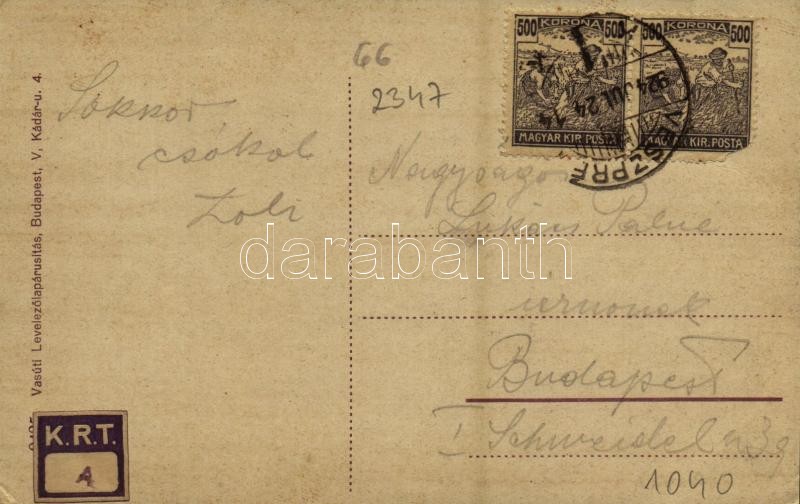 Vasúti Levelezőlapárusítás, Budapest, V, Kádár-u. 4.
66
2347
500 KORONA 500
MAGYAR KIR. POSTA
500 KORONA
MAGYAR KIR. POSTA
VESZPR
924 JUL 24 14
Sokszor
csókol
Zoli
Nagyságos
Lukács Palné
úrnőnek
Budapest
I Schweidel u. 3
1040
darabanth
K.R.T.
4